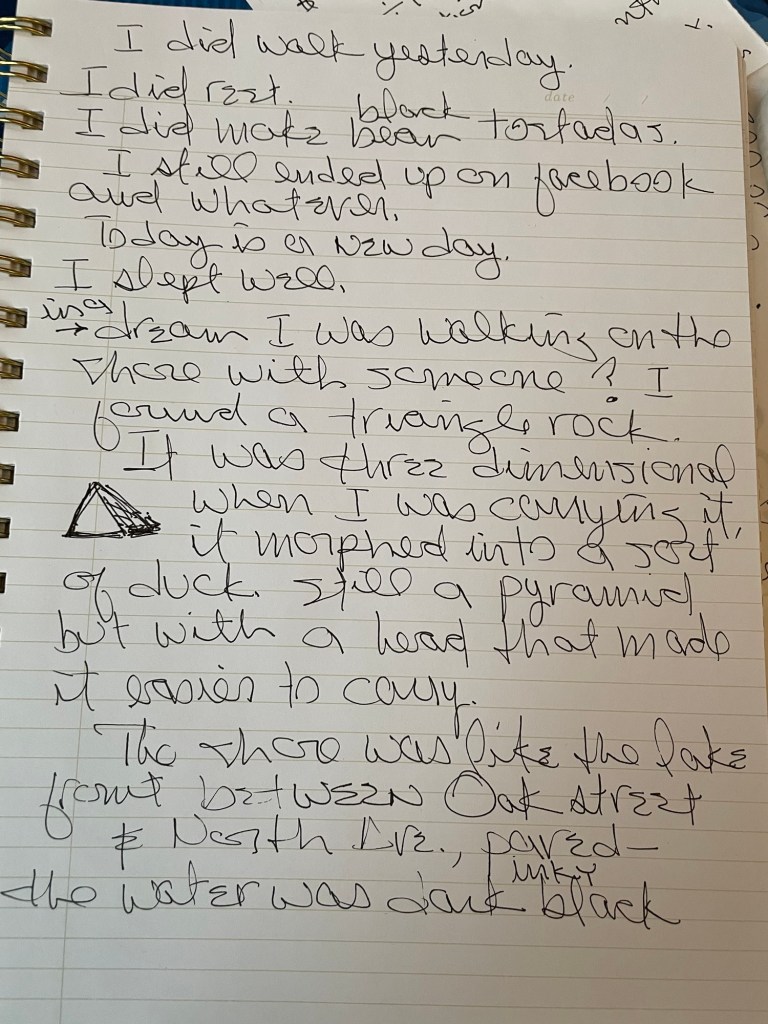 I did walk yesterday.
date / /
I did rest.
black
I did make bean tostadas.
I still ended up on facebook
and whatever.
Today is a new day.
I slept well.
in a
→ dream I was walking on the
shore with someone? I
found a triangle rock.
It was three dimensional
when I was carrying it,
it morphed into a sort
of duck. still a pyramid
but with a head that made
it easier to carry.
The shore was like the lake
front between Oak street
& North Ave., paved—
inky
the water was dark black